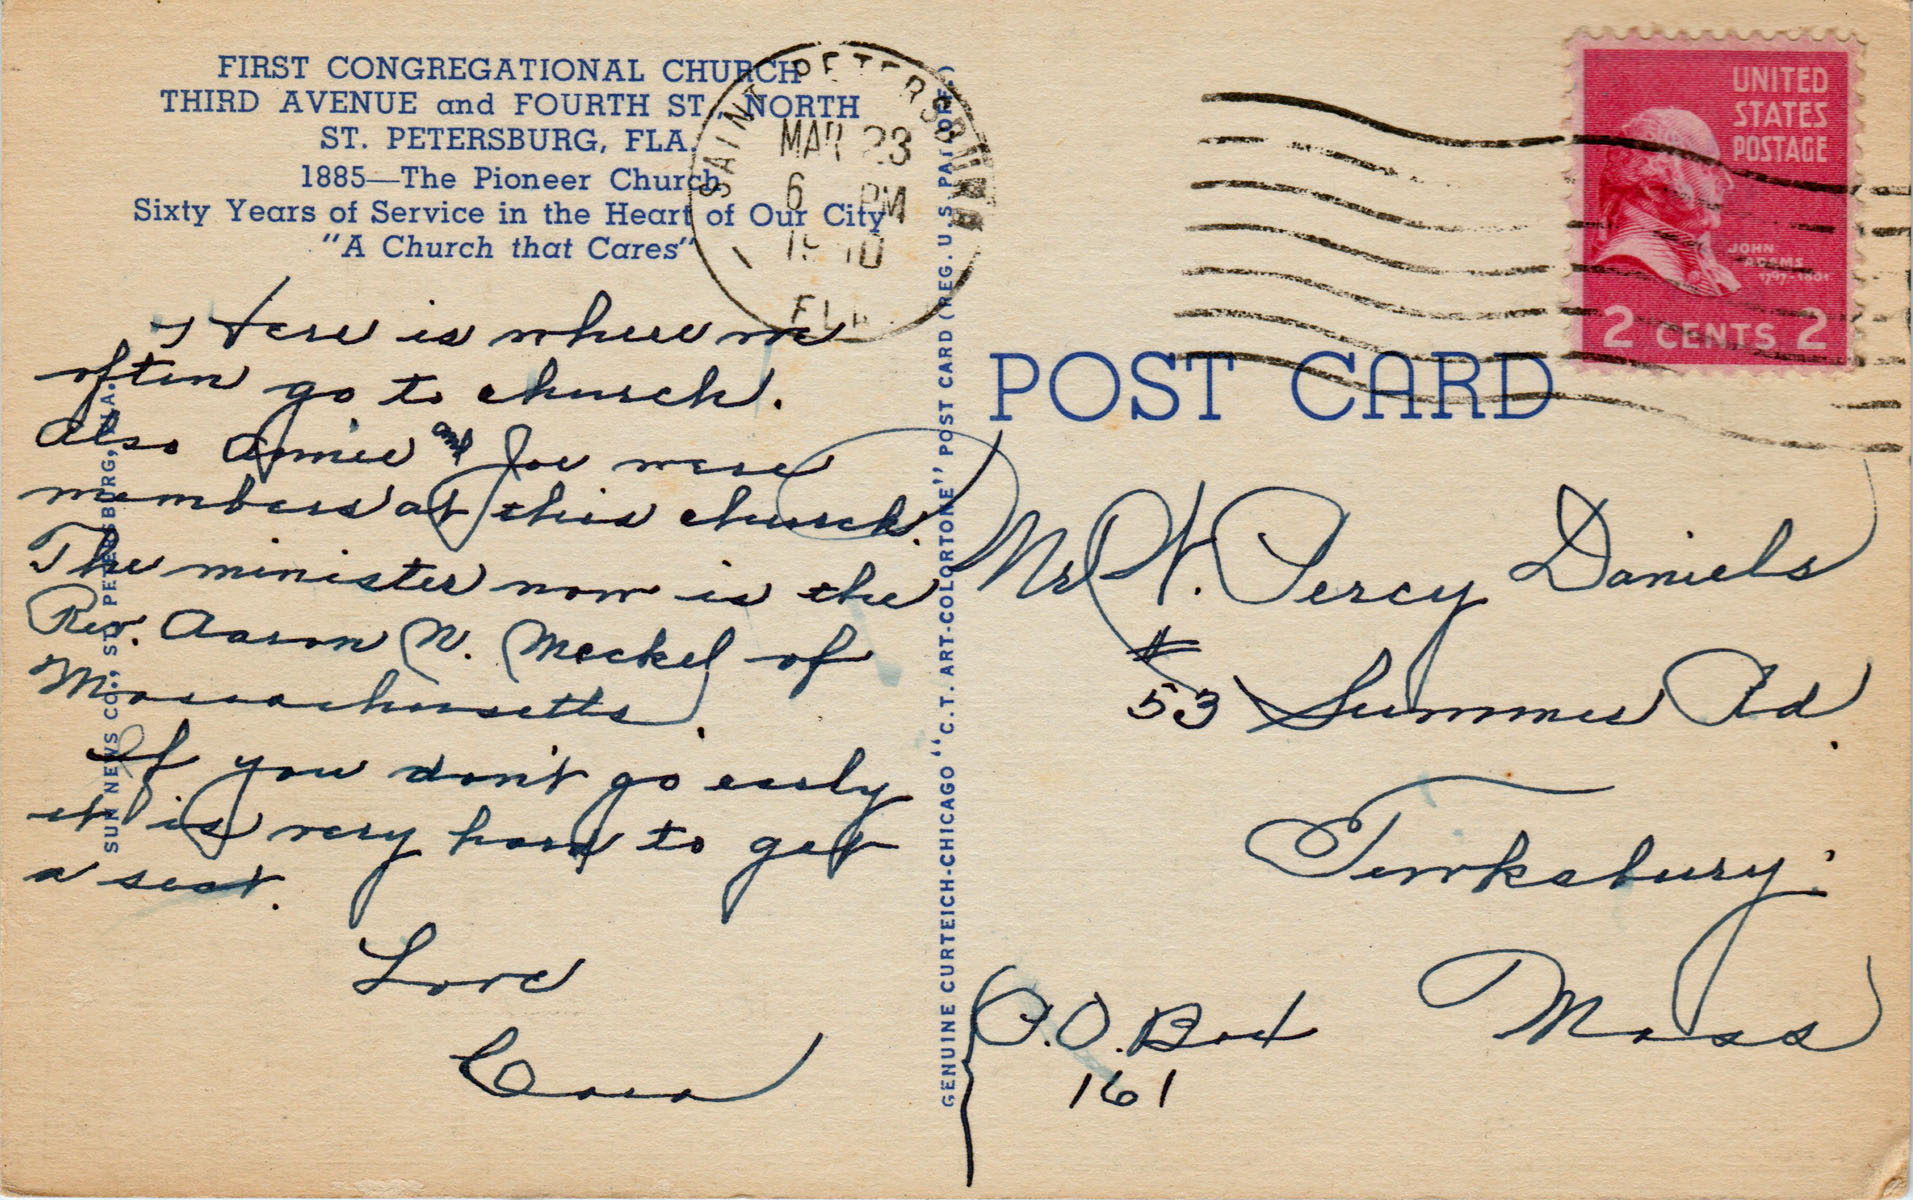 FIRST CONGREGATIONAL CHURCH
THIRD AVENUE and FOURTH ST., NORTH
ST. PETERSBURG, FLA.
1885—The Pioneer Church
Sixty Years of Service in the Heart of Our City
"A Church that Cares"
Here is where we
often go to church.
Also Annie and Joe were
members at this church.
The minister now is the
Rev. Aaron N. Meckel of
Massachusetts.
If you don't go early
it is very hard to get
a seat.
Love
Cora
SUN NEWS CO., ST. PETERSBURG, FLA.
GENUINE CURTEICH-CHICAGO "C.T. ART-COLORTONE" POST CARD (REG. U.S. PAT. OFF.)
SAINT PETERSBURG
MAR 23
6 PM
FLA.
UNITED
STATES
POSTAGE
JOHN
ADAMS
1797-1801
2 CENTS 2
POST CARD
Mr. W. Percy Daniels
#
53 Summer Rd.
Tewksbury:
Mass
P.O. Box
161